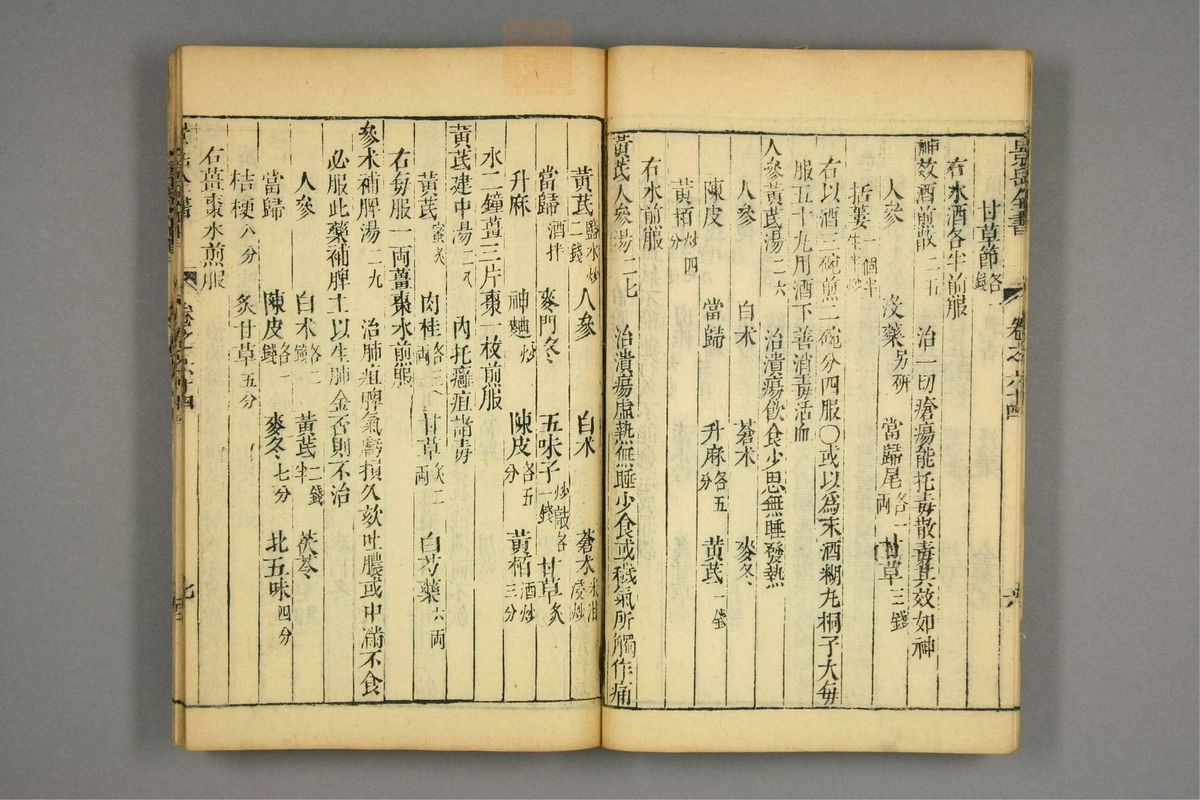 景岳全書 卷之六十四
甘草節各錢
右水酒各半煎服
神效酒煎散二五 治一切瘡瘍能托毒散毒其效如神
人參 沒藥另研 當歸尾各一両 甘草三錢
括蔞一個半生半炒
右以酒三碗煎二碗分四服○或以爲末酒糊丸桐子大每
服五十丸用酒下善消毒活血
人參黃芪湯二六 治潰瘍飲食少思無睡發熱
人參 白朮 蒼朮 麥冬
陳皮 當歸 升麻各五分 黃芪一錢
黃栢炒四分
右水煎服
黃芪人參湯二七 治潰瘍虛熱無睡少食或穢氣所觸作痛
黃芪鹽水炒二錢 人參 白朮 蒼朮米泔浸炒
當歸酒拌 麥門冬 五味子炒敲各一錢 甘草炙
升麻 神麯炒 陳皮各五分 黃栢酒炒三分
水二鐘薑三片棗一枚煎服
黃芪建中湯二八 內托癰疽諸毒
黃芪蜜炙 肉桂各三両 甘草炙二両 白芍藥六両
右每服一両薑棗水煎熊
參朮補脾湯二九 治肺疽脾氣虧損久欬吐膿或中滿不食
必服此藥補脾土以生肺金否則不治
人參 白朮各二錢 黃芪二錢半 茯苓
當歸 陳皮各一錢 麥冬七分 北五味四分
桔梗六分 炙甘草五分
右薑棗水煎服